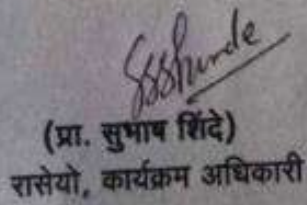 SSShinde
(प्रा. सुभाष शिंदे)
रासेयो, कार्यक्रम अधिकारी